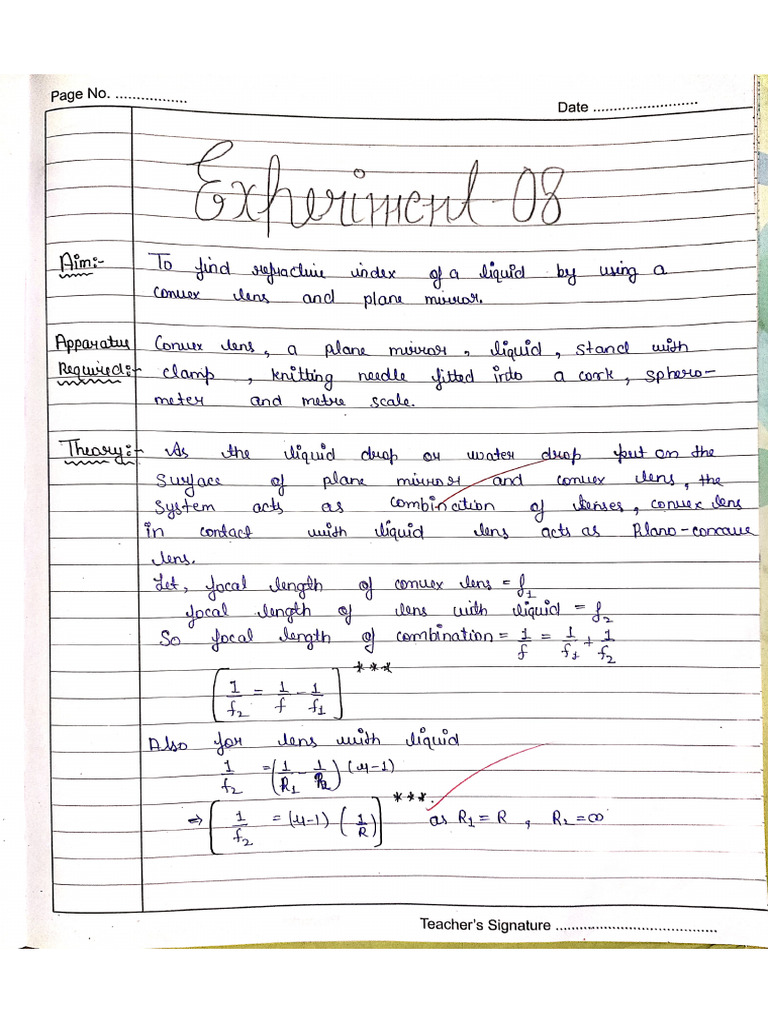 Page No. .................
Date ........................
Experiment-08
Aim:- To find refractive index of a liquid by using a
convex lens and plane mirror.
Apparatus Convex lens, a plane mirror, liquid, stand with
Required:- clamp, knitting needle fitted into a cork, sphero-
meter and metre scale.
Theory:- As the liquid drop or water drop put on the
surface of plane mirror and convex lens, the
system acts as combincition of lenses, convex lens
in contact with liquid lens acts as Plano-concave
lens.
Let, focal length of convex lens = f₁
focal length of lens with liquid = f₂
So focal length of combination = 1/f = 1/f₁ + 1/f₂
[1/f₂ = 1/f - 1/f₁] ***
Also for lens with liquid
1/f₂ = (1/R₁ - 1/R₂) (μ-1)
⇒ [1/f₂ = (μ-1) (1/R)] ***. as R₁ = R , R₂ = ∞
Teacher's Signature .....................................